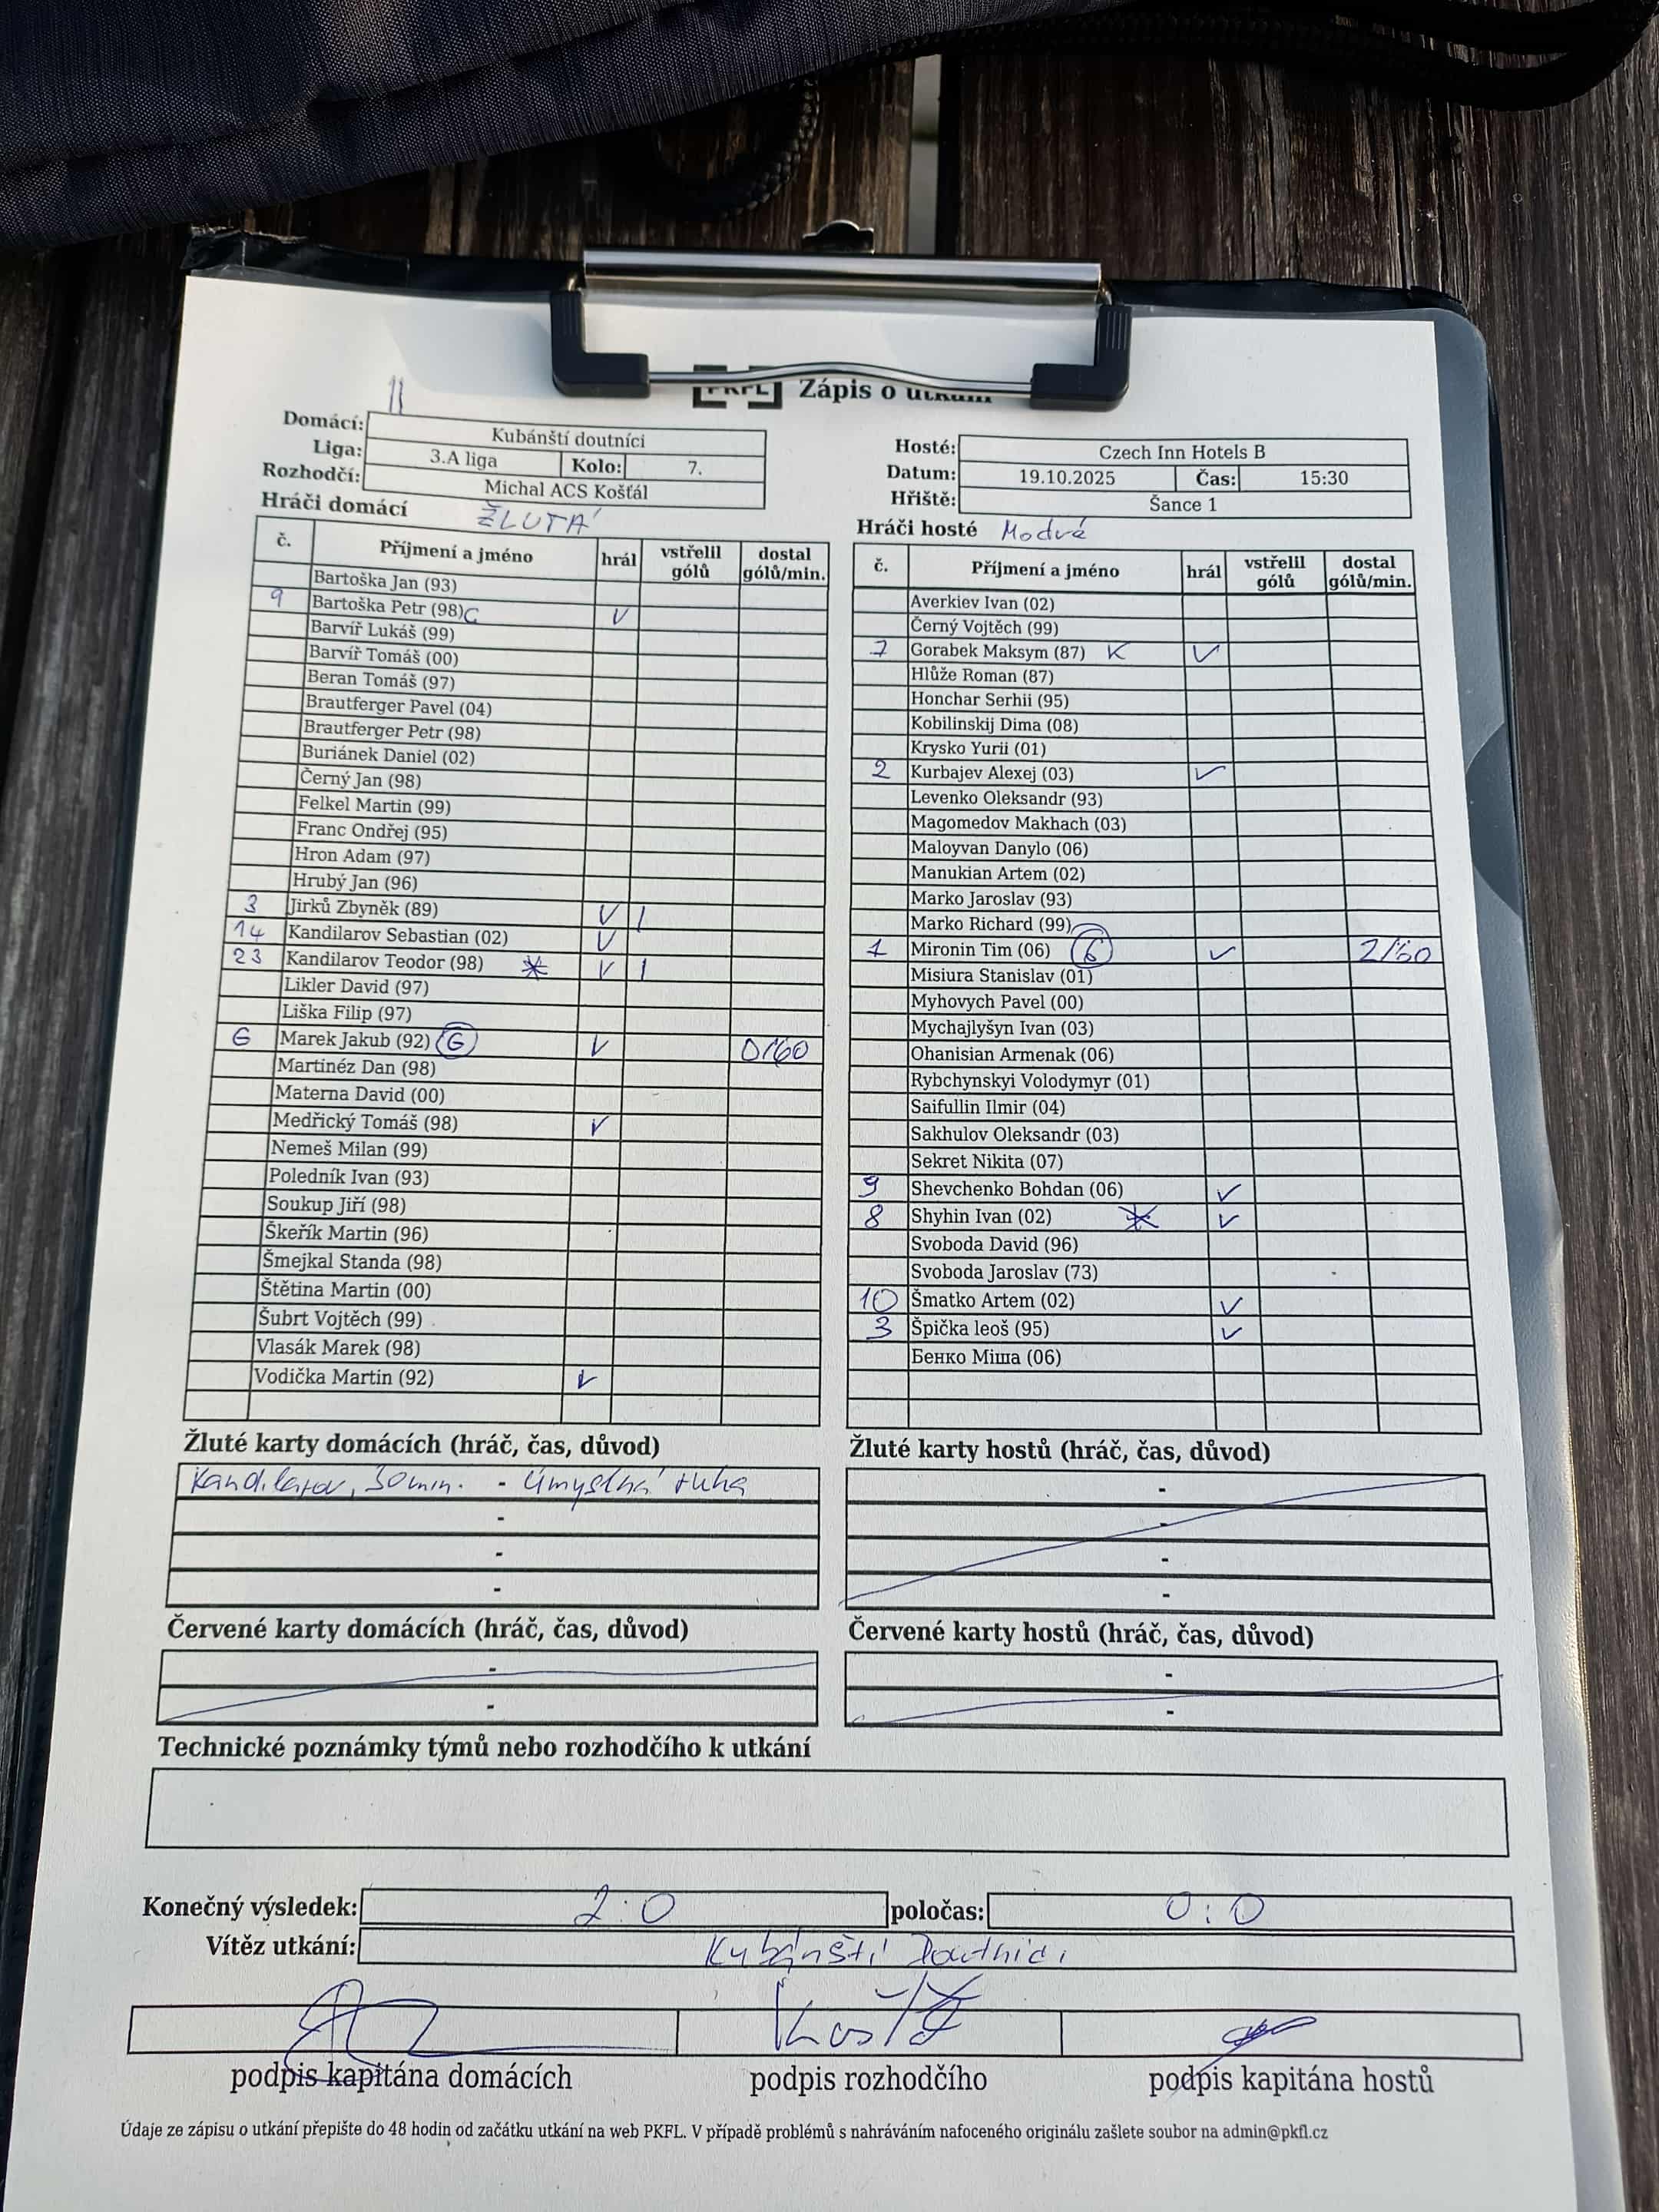 Zápis o utkání
Domácí: Kubánští doutníci
Liga: 3.A liga Kolo: 7.
Rozhodčí: Michal ACS Košťál
Hosté: Czech Inn Hotels B
Datum: 19.10.2025 Čas: 15:30
Hřiště: Šance 1
Hráči domácí ŽLUTÁ
č. Příjmení a jméno hrál vstřelil gólů dostal gólů/min.
Bartoška Jan (93)
9 Bartoška Petr (98) C V
Barvíř Lukáš (99)
Barvíř Tomáš (00)
Beran Tomáš (97)
Brautferger Pavel (04)
Brautferger Petr (98)
Buriánek Daniel (02)
Černý Jan (98)
Felkel Martin (99)
Franc Ondřej (95)
Hron Adam (97)
Hrubý Jan (96)
3 Jirků Zbyněk (89) V |
14 Kandilarov Sebastian (02) V
23 Kandilarov Teodor (98) * V |
Likler David (97)
Liška Filip (97)
6 Marek Jakub (92) G V 0/60
Martinéz Dan (98)
Materna David (00)
Medřický Tomáš (98) V
Nemeš Milan (99)
Poledník Ivan (93)
Soukup Jiří (98)
Škeřík Martin (96)
Šmejkal Standa (98)
Štětina Martin (00)
Šubrt Vojtěch (99)
Vlasák Marek (98)
Vodička Martin (92) V
Hráči hosté Modrá
č. Příjmení a jméno hrál vstřelil gólů dostal gólů/min.
Averkiev Ivan (02)
Černý Vojtěch (99)
7 Gorabek Maksym (87) K V
Hlůže Roman (87)
Honchar Serhii (95)
Kobilinskij Dima (08)
Krysko Yurii (01)
2 Kurbajev Alexej (03) V
Levenko Oleksandr (93)
Magomedov Makhach (03)
Maloyvan Danylo (06)
Manukian Artem (02)
Marko Jaroslav (93)
Marko Richard (99)
1 Mironin Tim (06) G V 2/60
Misiura Stanislav (01)
Myhovych Pavel (00)
Mychajlyšyn Ivan (03)
Ohanisian Armenak (06)
Rybchynskyi Volodymyr (01)
Saifullin Ilmir (04)
Sakhulov Oleksandr (03)
Sekret Nikita (07)
9 Shevchenko Bohdan (06) V
8 Shyhin Ivan (02) * V
Svoboda David (96)
Svoboda Jaroslav (73)
10 Šmatko Artem (02) V
3 Špička leoš (95) V
Бенко Міша (06)
Žluté karty domácích (hráč, čas, důvod)
Kandilarov, 30min. - Úmyslná ruka
-
-
-
Žluté karty hostů (hráč, čas, důvod)
-
-
-
-
Červené karty domácích (hráč, čas, důvod)
-
-
Červené karty hostů (hráč, čas, důvod)
-
-
Technické poznámky týmů nebo rozhodčího k utkání
Konečný výsledek: 2:0 poločas: 0:0
Vítěz utkání: Kubánští Doutníci
podpis kapitána domácích podpis rozhodčího podpis kapitána hostů
Údaje ze zápisu o utkání přepište do 48 hodin od začátku utkání na web PKFL. V případě problémů s nahráváním nafoceného originálu zašlete soubor na admin@pkfl.cz